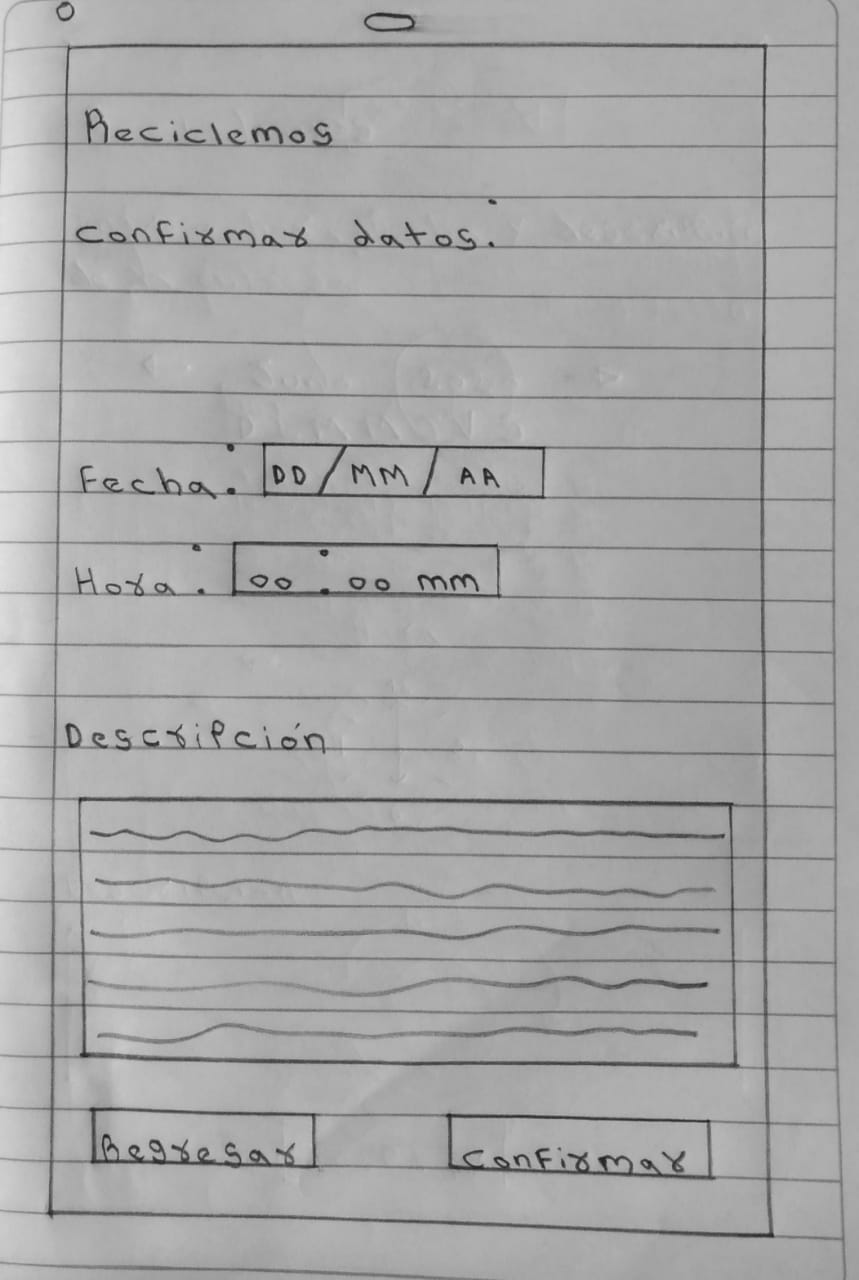 Reciclemos
Confirmar datos:
Fecha: DD / MM / AA
Hora: 00:00 mm
Descripción
Regresar
Confirmar